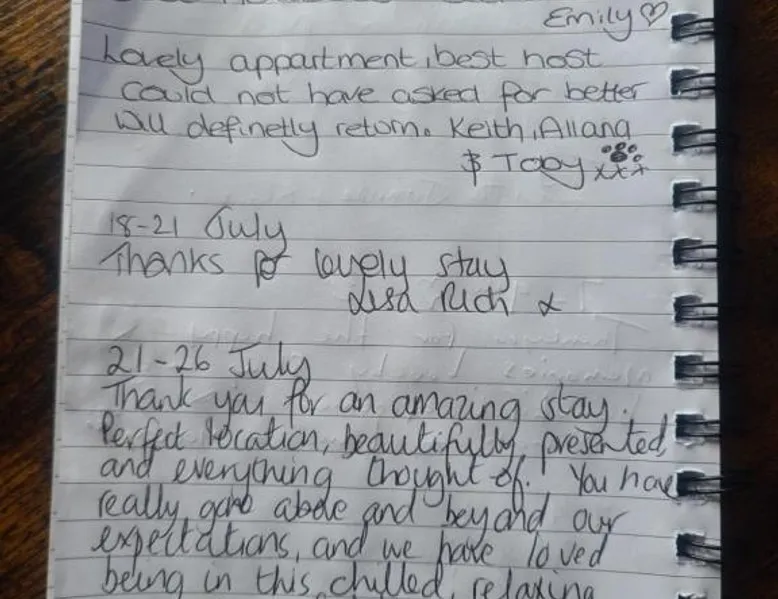 Emily ♡
Lovely appartment, best host
could not have asked for better
will definetly return. Keith, Allana
& Toby xxx
18-21 July
Thanks for lovely stay
Lisa Rich x
21-26 July
Thank you for an amazing stay.
Perfect location, beautifully presented,
and everything thought of. You have
really gone above and beyond our
expectations, and we have loved
being in this chilled, relaxing